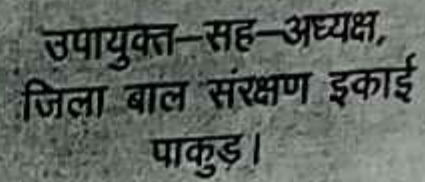 उपायुक्त–सह–अध्यक्ष,
जिला बाल संरक्षण इकाई
पाकुड़।